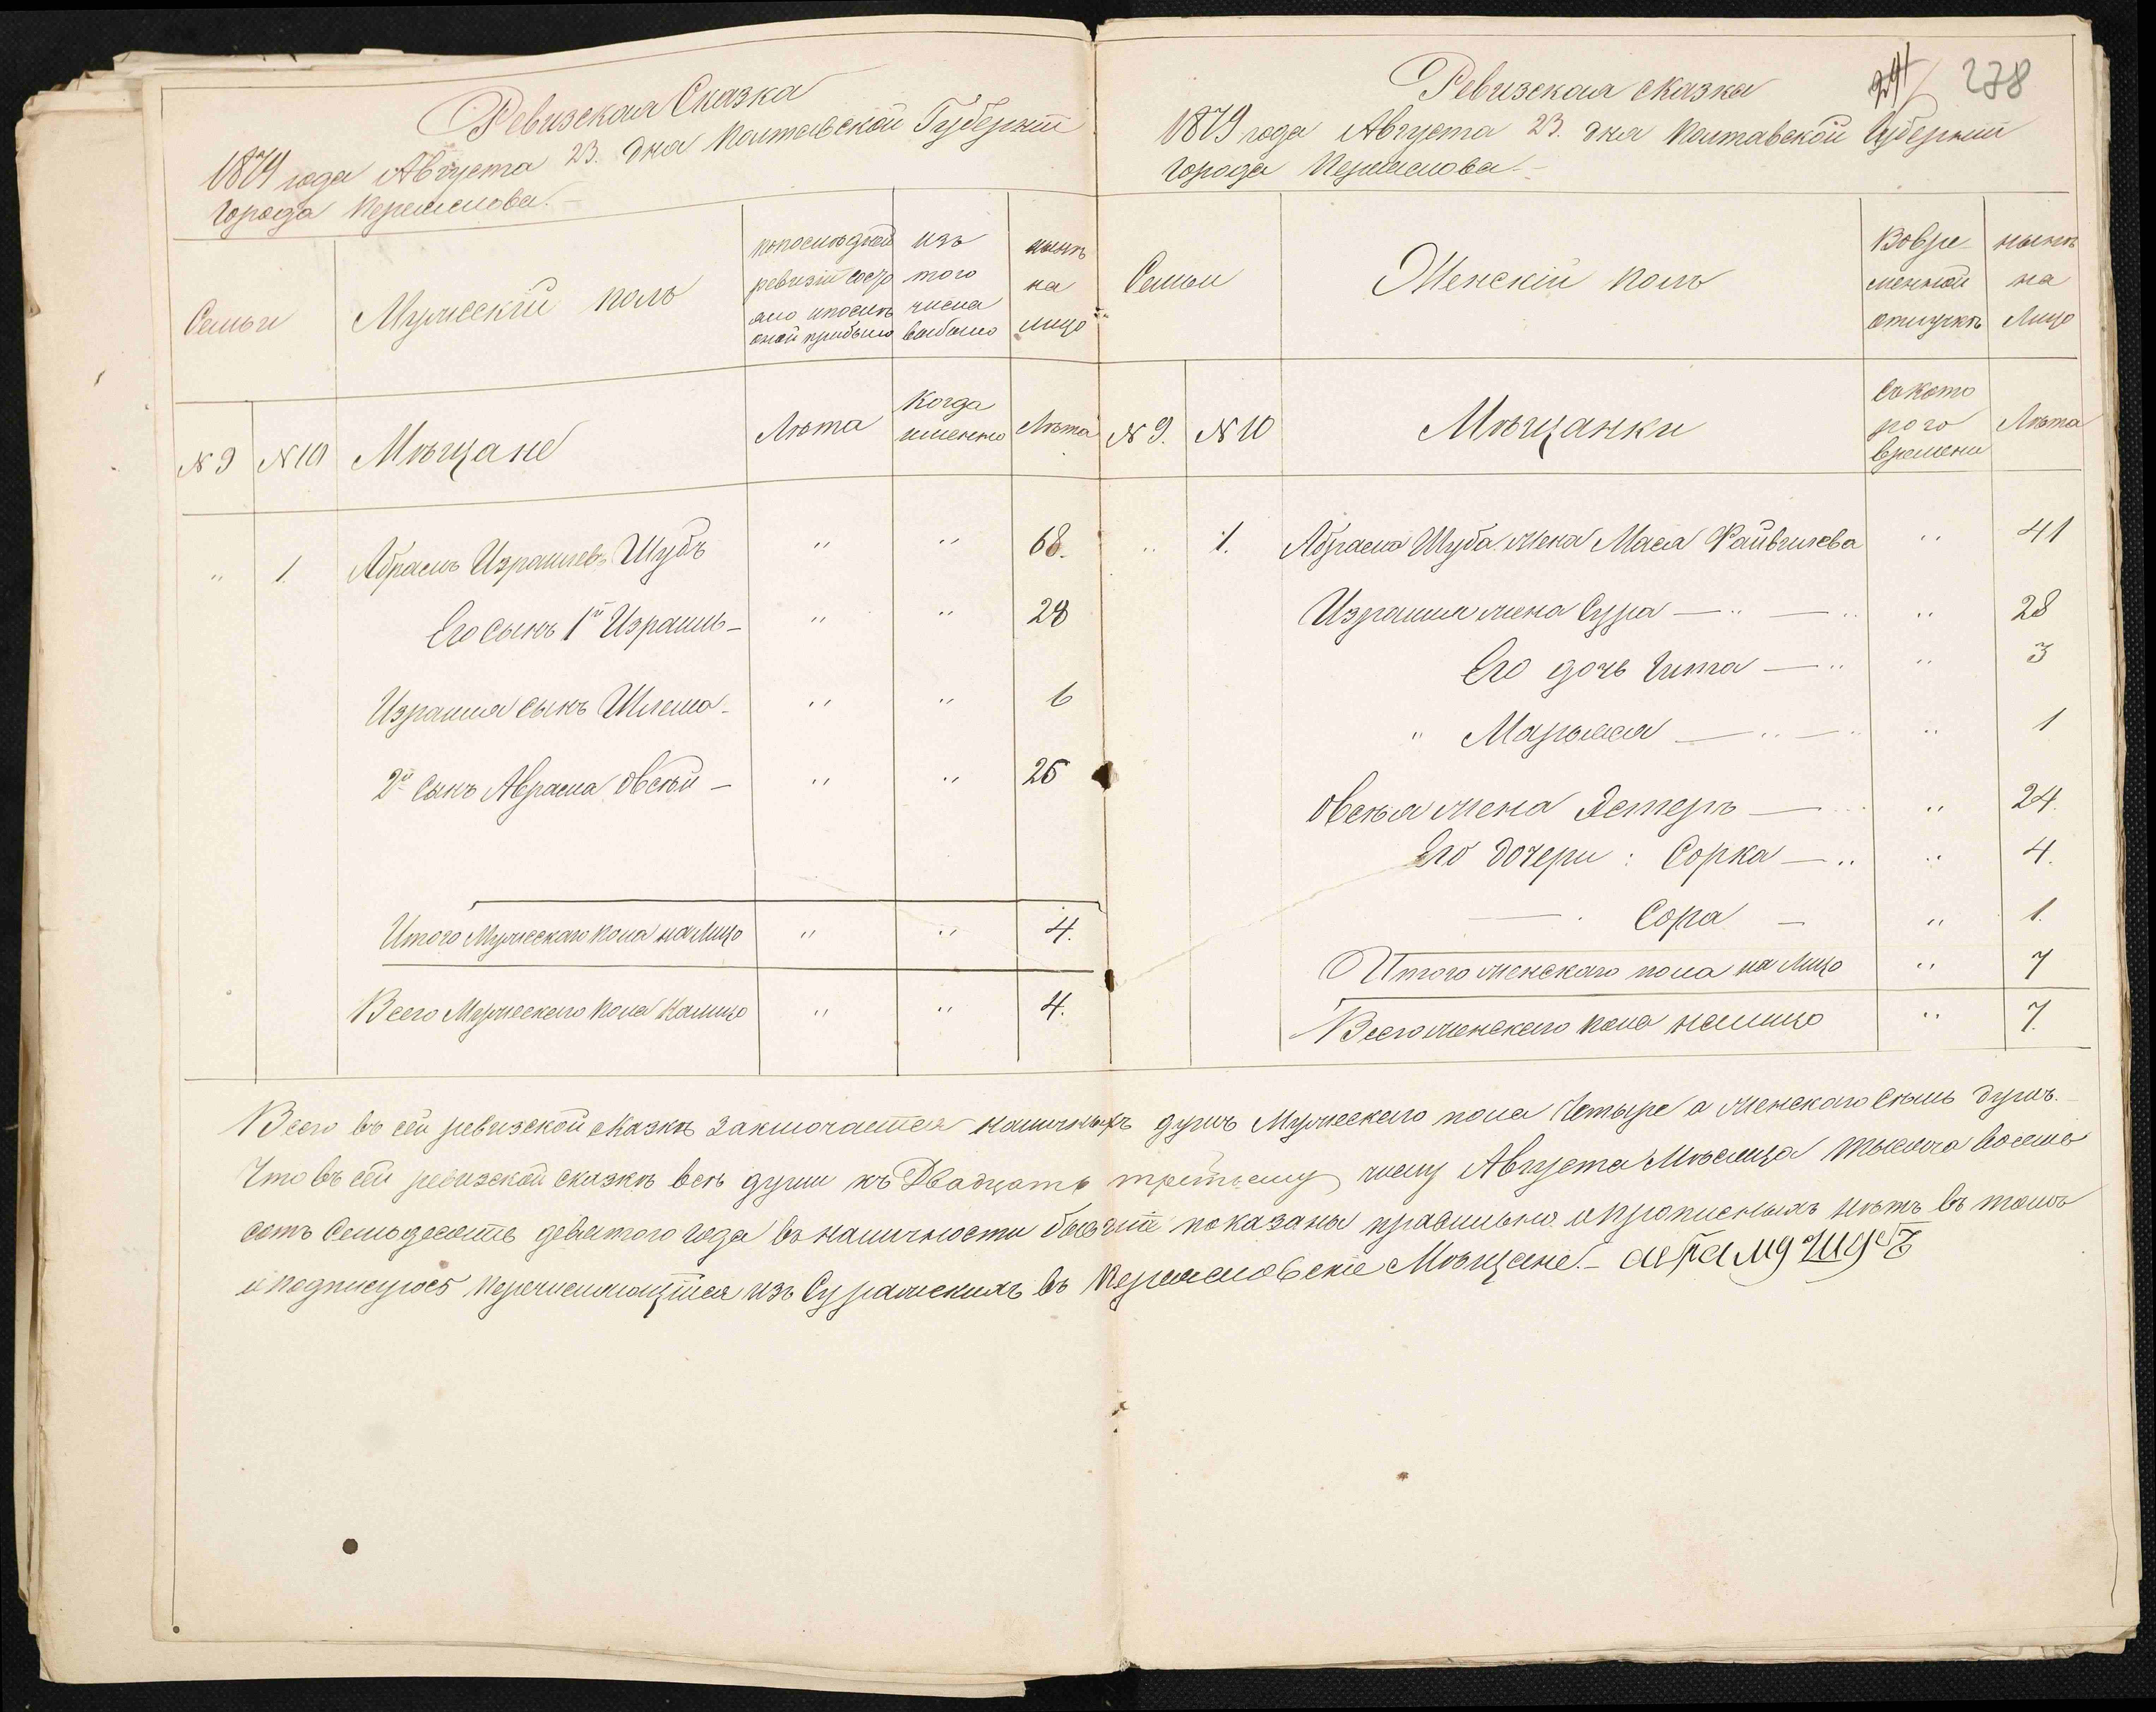 Ревизская Сказка
1879 года Августа 23. дня Полтавской Губерніи
города Переяслова.
Семьи
Мужескій полъ
попослѣдней
ревизіи состо
яло ипослѣ
оной прибыло
изъ
того
числа
выбыло
нынѣ
на
лицо
№ 9
№ 10
Мѣщане
Лѣта
Когда
именно
Лѣта
„ 1. Абрамъ Израилевъ Шубъ „ „ 68.
Его сынъ 1й Израиль — „ „ 28
Израиля сынъ Шлема — „ „ 6
2й сынъ Абрама Овсѣй — „ „ 25
Итого Мужескаго пола на Лицо „ „ 4.
Всего Мужескаго пола налицо „ „ 4.
24 278
Ревизская сказка
1879 года Августа 23. дня Полтавской Губерніи
города Переяслова —
Семьи
Женскій полъ
Вовре
менной
отлучкѣ
нынѣ
на
Лицо
№ 9.
№ 10
Мѣщанки
Съкото
раго
времени
Лѣта
„ 1. Абрама Шуба жена Мася Файвишева „ 41
Израиля жена Сура — „ — „ „ 28
Его дочь Гита — „ „ 3
„ Марьяся — „ — „ „ 1
Овсѣя жена Эстеръ — „ 24.
Его дочери : Сорка — „ „ 4.
— . Сора — „ 1.
Итого женскаго пола на Лицо „ 7
Всего женскаго пола налицо „ 7.
Всего въ сей ревизской сказкѣ заключается наличныхъ душъ Мужескаго пола Четыре а женскаго семь душъ.
Что въ сей ревизской сказкѣ всѣ души къ Двадцать третьему числу Августа Мѣсяца тысяча восемь
сотъ Семьдесятъ девятого года въ наличности бывшіе показаны правильно и прописныхъ нѣтъ въ томъ
и подписуюсь перечисляющійся изъ Суражскихъ въ Переясловскіе Мѣщане. — Абрамъ Шубъ